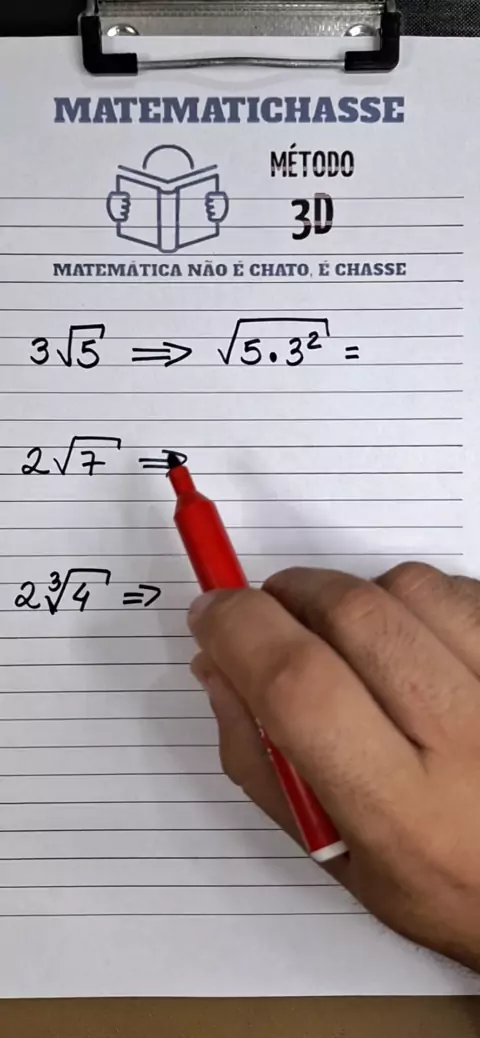 MATEMATICHASSE
MÉTODO
3D
MATEMÁTICA NÃO É CHATO, É CHASSE
3√5 ⇒ √5.3² =
2√7 ⇒
2∛4 ⇒